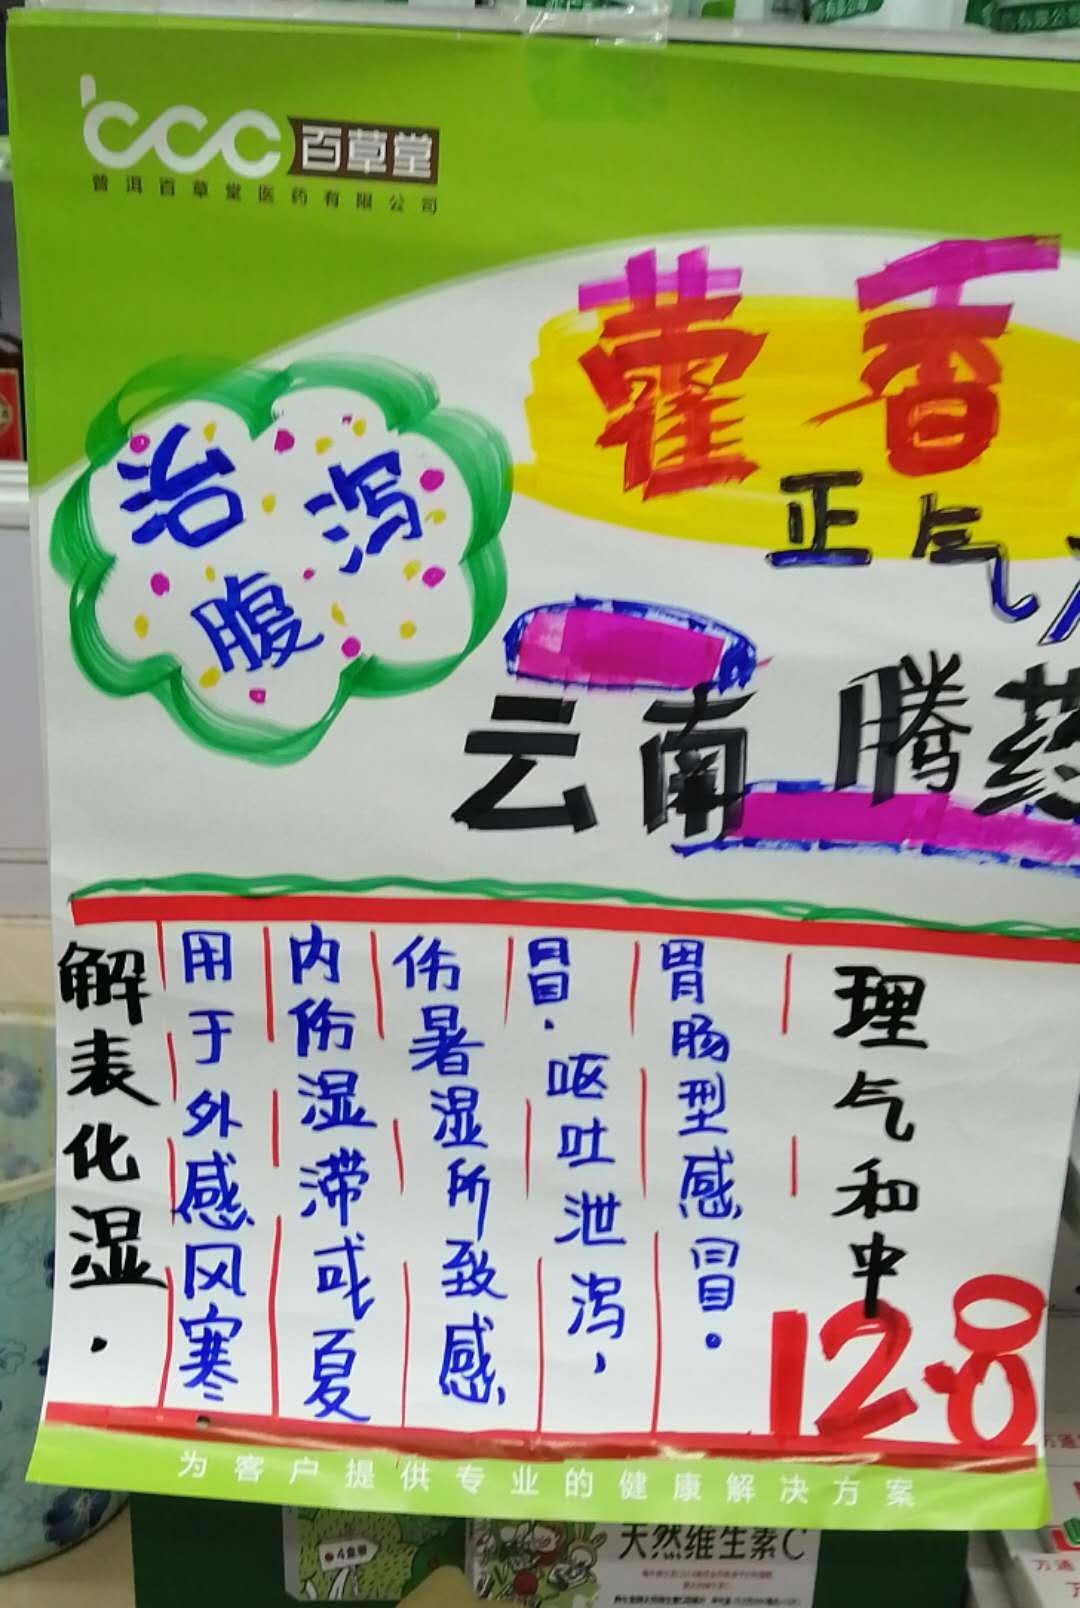 百草堂
普洱百草堂医药有限公司
藿香
正气
治腹泻
云南腾药
解表化湿.
用于外感风寒
内伤湿滞或夏
伤暑湿所致感
冒.呕吐泄泻,
胃肠型感冒.
理气和中
12.8
为客户提供专业的健康解决方案
天然维生素C
4盒装
万通